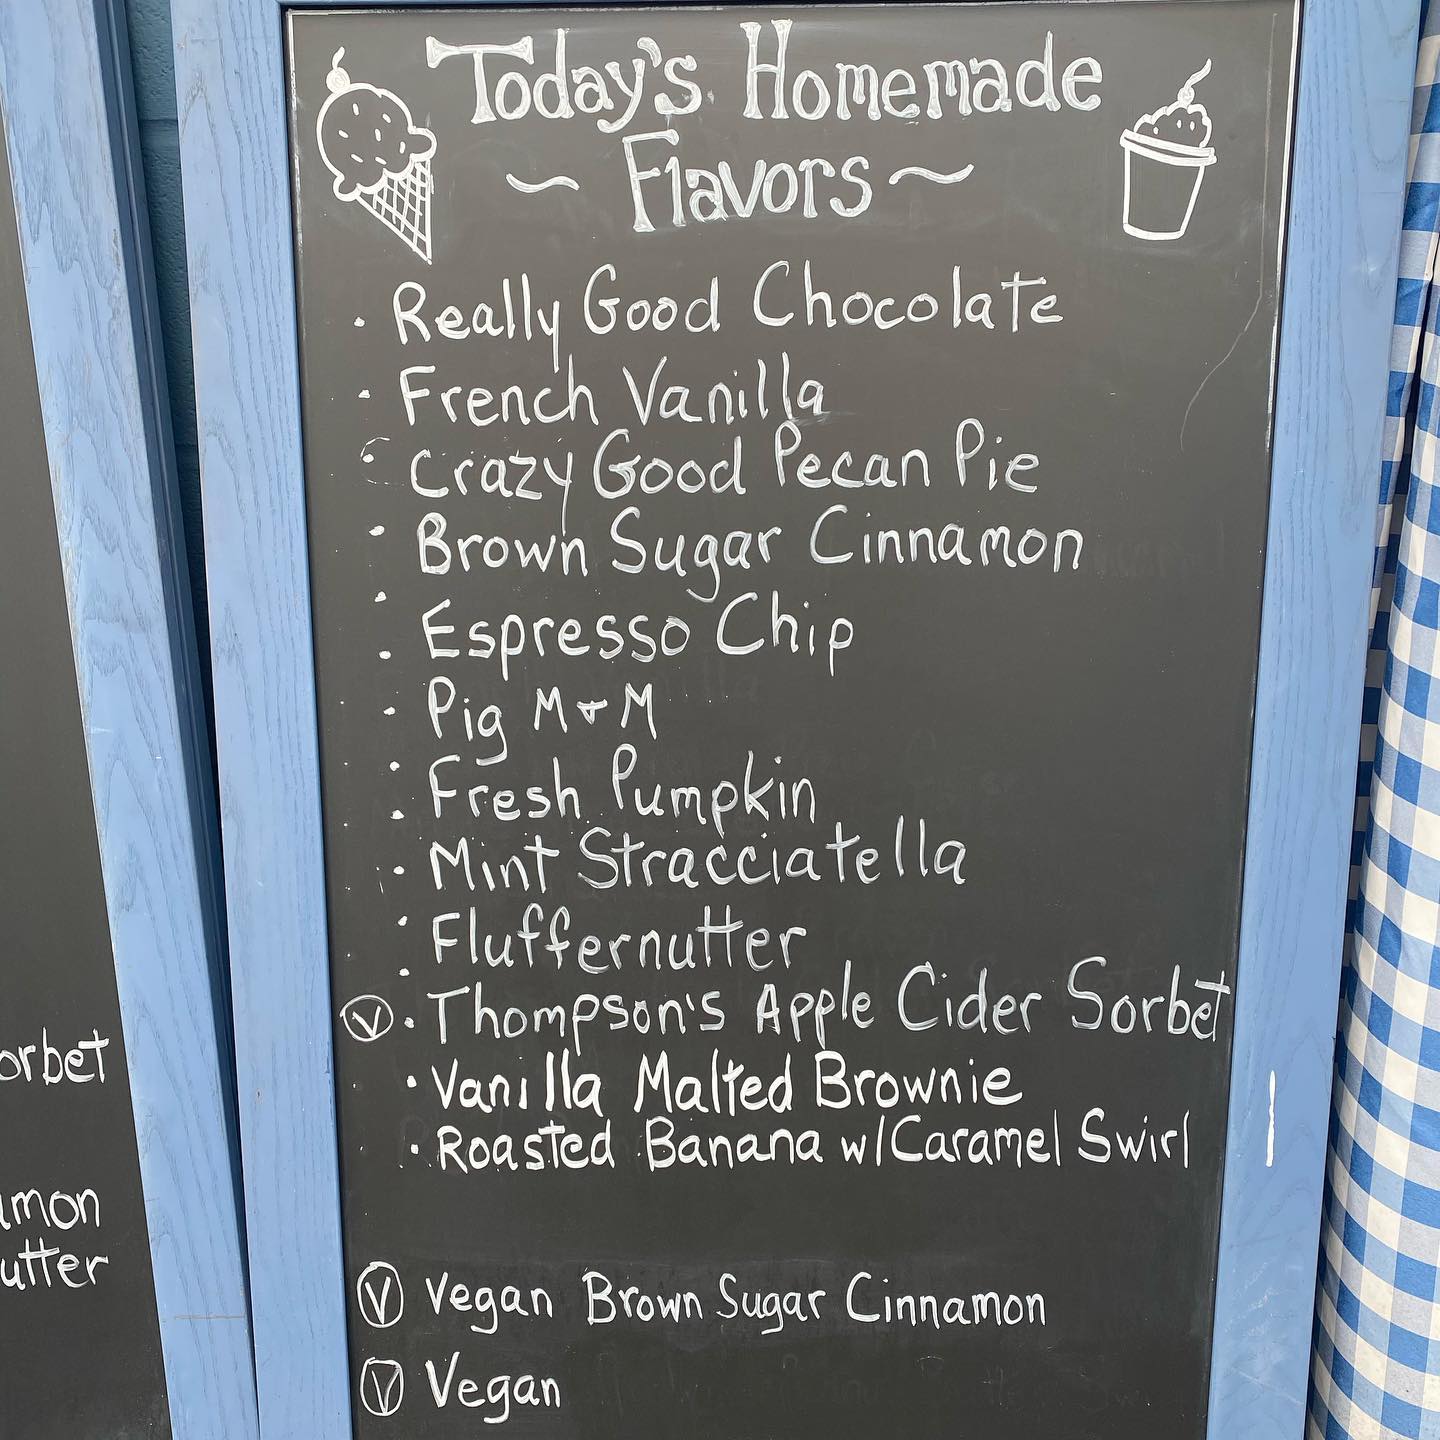 Today's Homemade
~ Flavors ~
· Really Good Chocolate
· French Vanilla
· Crazy Good Pecan Pie
· Brown Sugar Cinnamon
· Espresso Chip
· Pig M+M
· Fresh Pumpkin
· Mint Stracciatella
· Fluffernutter
Ⓥ · Thompson's Apple Cider Sorbet
· Vanilla Malted Brownie
· Roasted Banana w/Caramel Swirl
Ⓥ Vegan Brown Sugar Cinnamon
Ⓥ Vegan
orbet
amon
utter